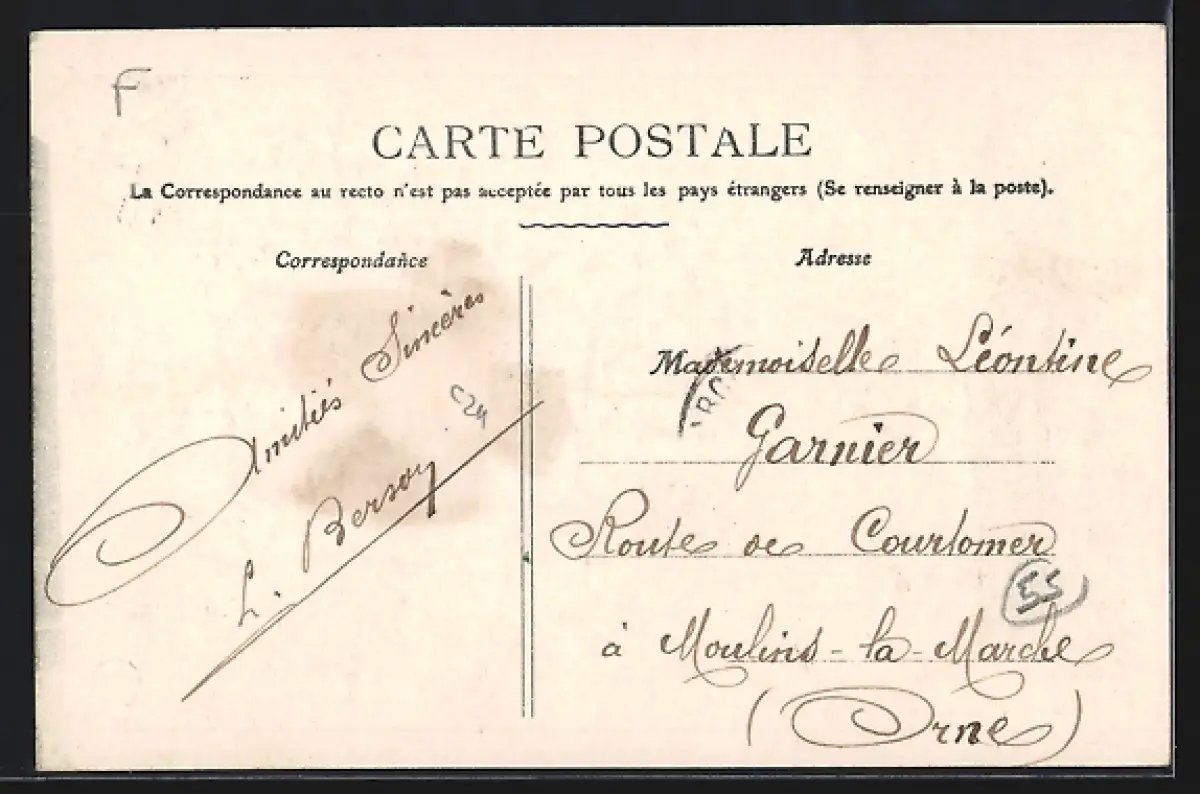 F
CARTE POSTALE
La Correspondance au recto n'est pas acceptée par tous les pays étrangers (Se renseigner à la poste).
Correspondance
Amitiés Sincères
L. Berson
C24
Adresse
Mademoiselle Léontine
Garnier
Route de Courtomer
55
à Moulins-la-Marche
(Orne)